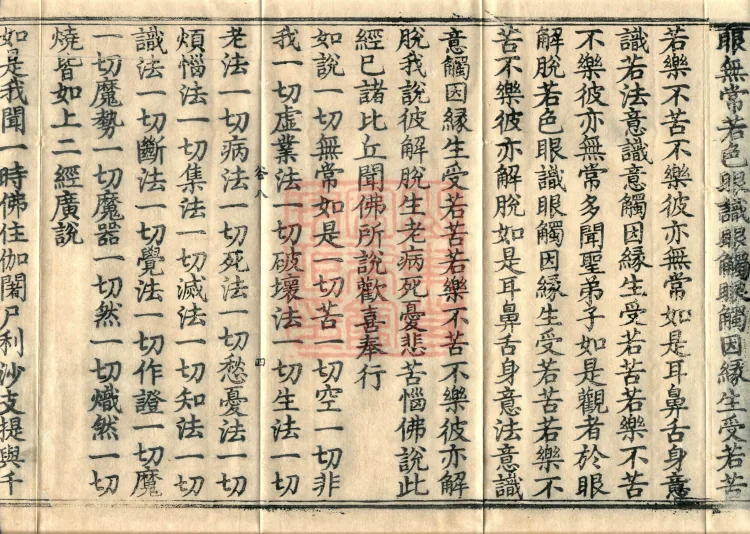 眼無常若色眼識眼觸眼觸因緣生受若苦
若樂不苦不樂彼亦無常如是耳鼻舌身意
識若法意識意觸因緣生受若苦若樂不苦
不樂彼亦無常多聞聖弟子如是觀者於眼
解脫若色眼識眼觸因緣生受若苦若樂不
苦不樂彼亦解脫如是耳鼻舌身意法意識
意觸因緣生受若苦若樂不苦不樂彼亦解
脫我說彼解脫生老病死憂悲苦惱佛說此
經已諸比丘聞佛所說歡喜奉行
如說一切無常如是一切苦一切空一切非
我一切虛業法一切破壞法一切生法一切
老法一切病法一切死法一切愁憂法一切
煩惱法一切集法一切滅法一切知法一切
識法一切斷法一切覺法一切作證一切魔
一切魔勢一切魔器一切然一切熾然一切
燒皆如上二經廣說
如是我聞一時佛住伽闍尸利沙支提與千